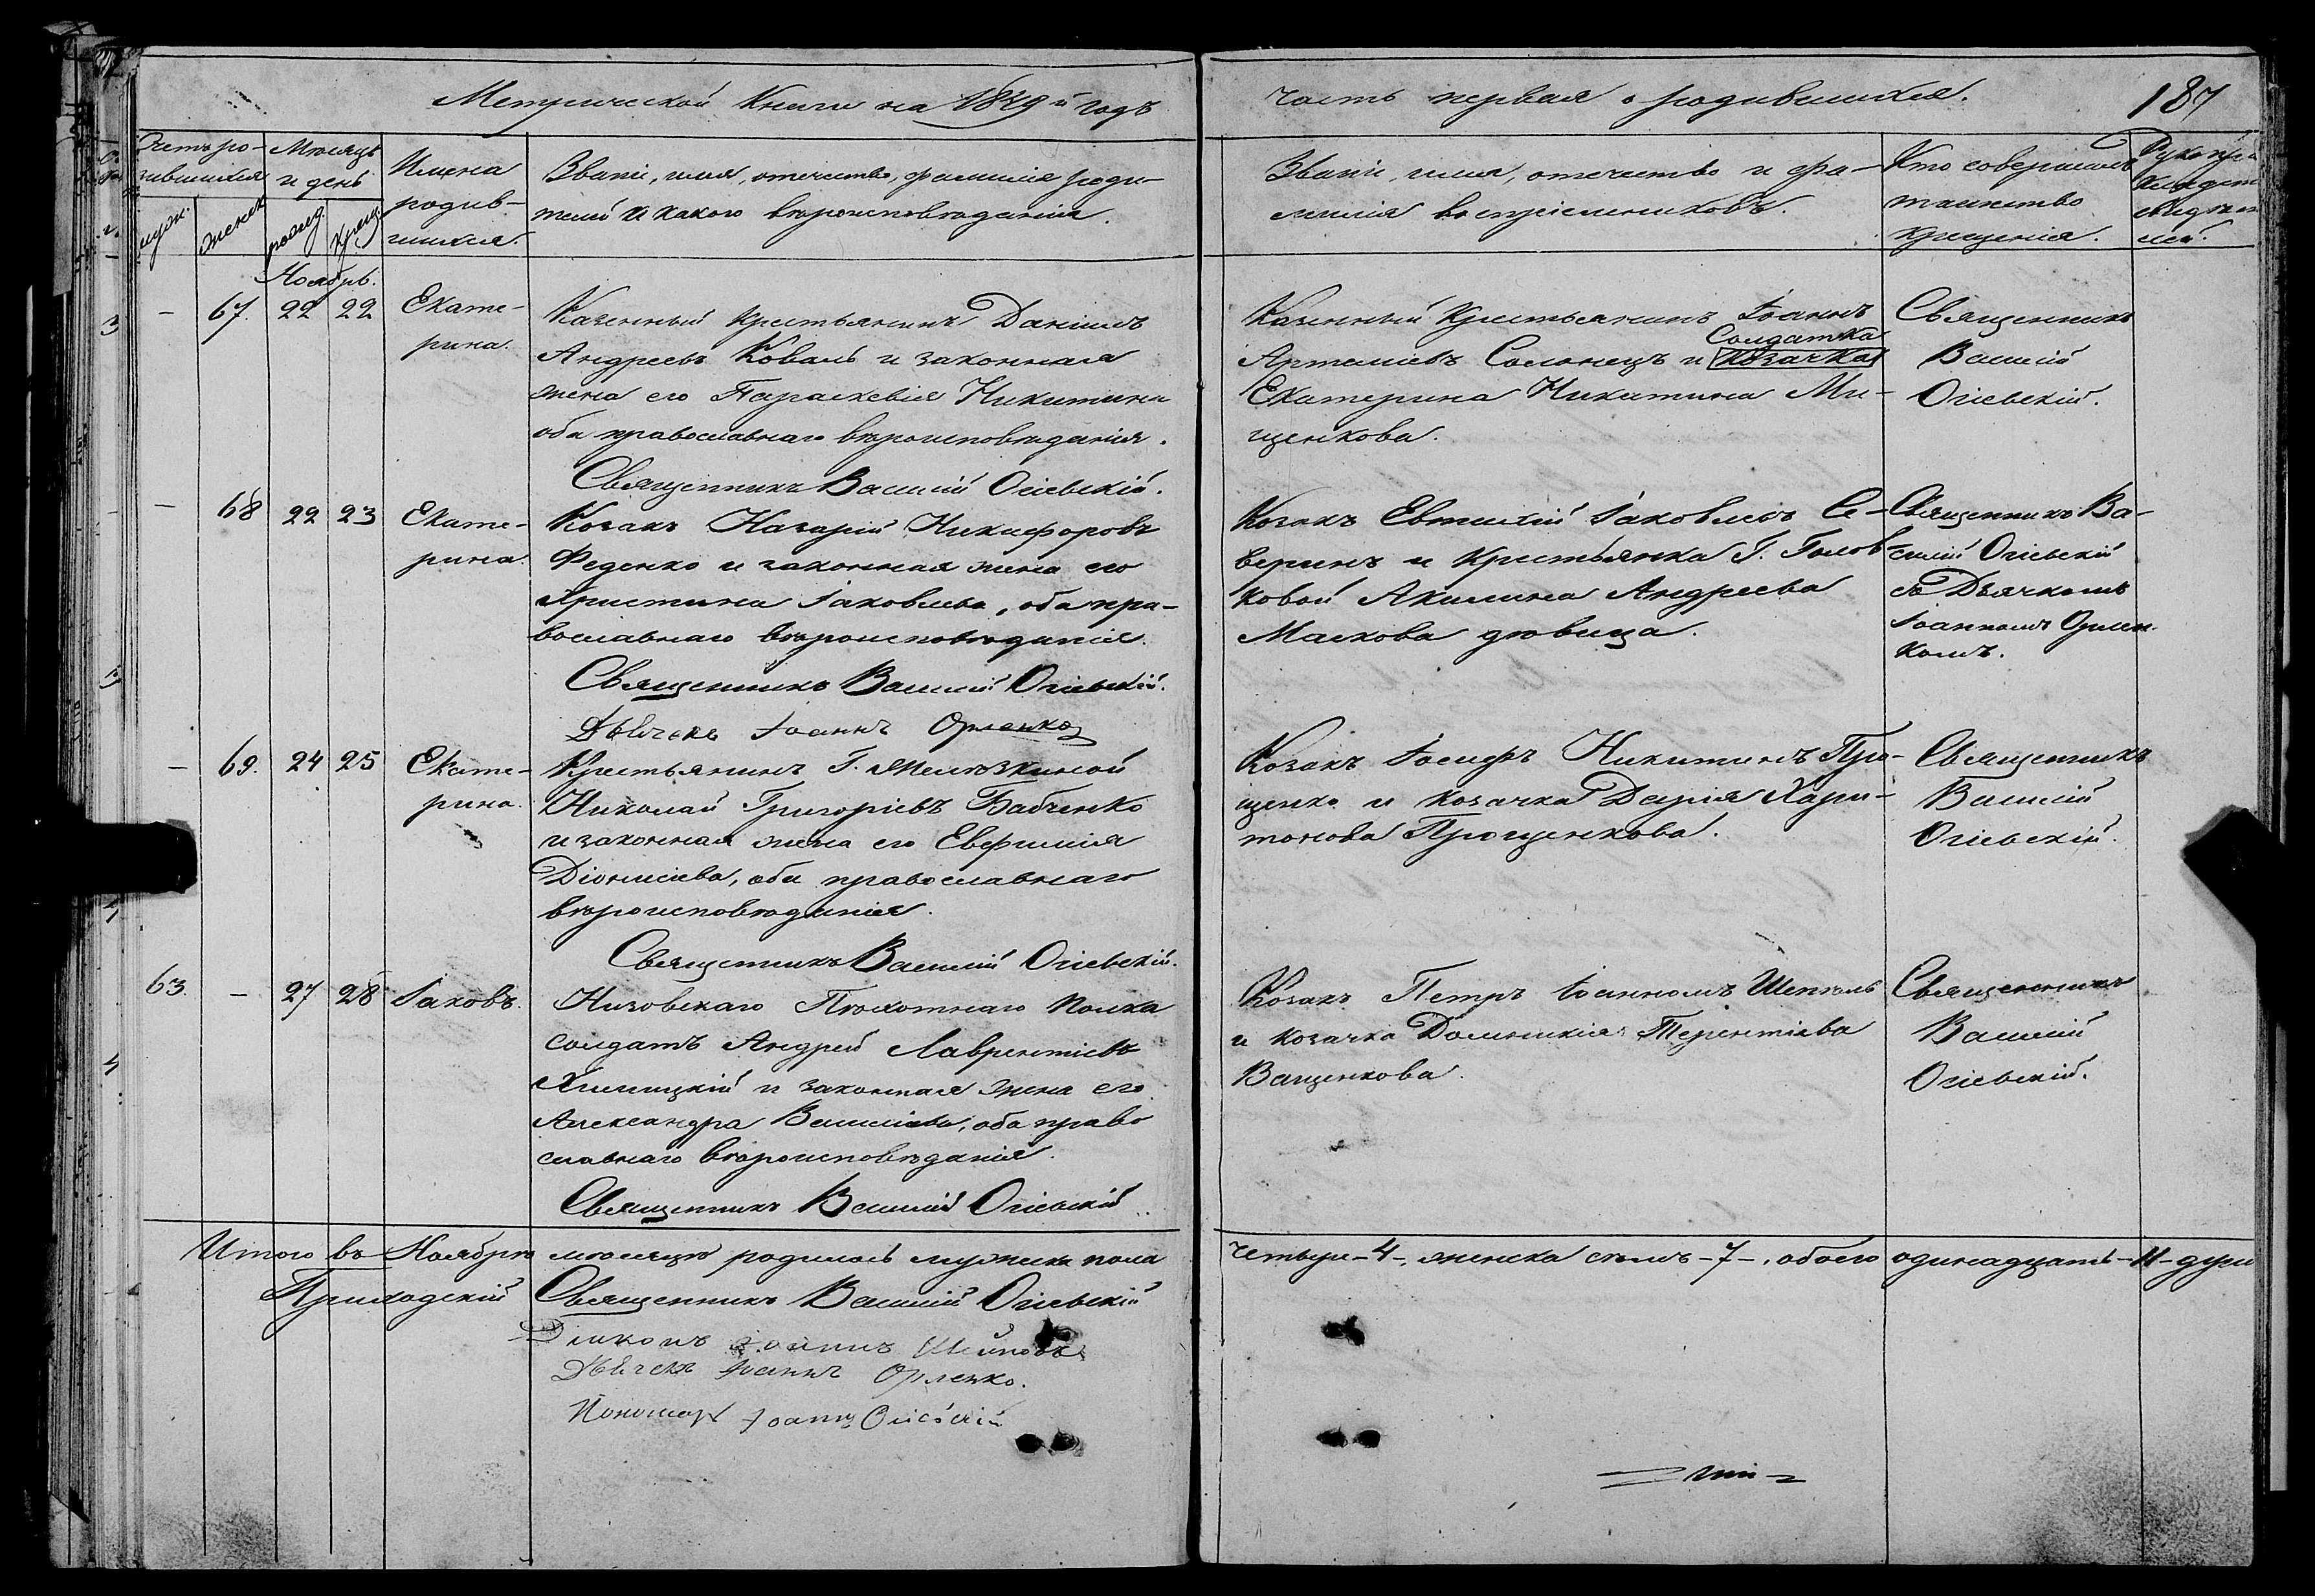 Метрической Книги на 1849й годъ
часть первая о родившихся.
187
Счетъ ро-
дившихся
муж.
женск
Месяцъ
и день
рожд.
крещ.
Имена
родив-
шихся.
Званіе, имя, отечество, фамилія роди-
телей и какого вѣроисповѣданія.
Званіе, имя, отечество и фа-
милія воспріемниковъ.
Кто совершалъ
таинство
крещенія.
Ноябрь.
– 67. 22 22
Екате-
рина.
Казенный крестьянинъ Даніилъ
Андреевъ Коваль и законная
жена его Параскевія Никитина
оба православнаго вѣроисповѣданія.
Священникъ Василій Огіевскій.
Казенный крестьянинъ Іоаннъ
Солдатка
Артеміевъ Солонецъ и козачка
Екатерина Никитина Ми-
щенкова.
Священникъ
Василій
Огіевскій.
– 68 22 23
Екате-
рина.
Козакъ Назарій Никифоровъ
Феденко и законная жена его
Христина Іаковлева, оба пра-
вославнаго вѣроисповѣданія.
Священникъ Василій Огіевскій.
Дьячекъ Іоаннъ Орленко
Козакъ Евтихій Іаковлевъ Се-
веринъ и крестьянка Г. Голов-
ковой Акилина Андреева
Малкова дѣвица.
Священникъ Ва-
силій Огіевскій
съ Дьячкомъ
Іоанномъ Орлен-
комъ.
– 69. 24 25
Екате-
рина.
Крестьянинъ Г.
Николай Григоріевъ Бабченко
и законная жена его Евфимія
Діонисіева, оба православнаго
вѣроисповѣданія.
Священникъ Василій Огіевскій.
Козакъ Іосифъ Никитинъ Про-
щенко и козачка Дарія Хари-
тонова Прощенкова.
Священникъ
Василій
Огіевскій.
63. – 27 28
Іаковъ.
Низовскаго Пѣхотнаго Полка
солдатъ Андрей Лаврентіевъ
и законная жена его
Александра Василіева, оба право
славнаго вѣроисповѣданія.
Священникъ Василій Огіевскій
Козакъ Петръ
и козачка Домникія Терентіева
Ващенкова.
Священникъ
Василій
Огіевскій.
Итого въ Ноябрѣ мѣсяцѣ родилось мужеска пола
четыре -4-, женска семь -7-, обоего одинадцать -11- душ
Приходскій Священникъ Василій Огіевскій
Діаконъ Іоаннъ
Дьячекъ Іоаннъ Орленко.
Пономарь Іоаннъ